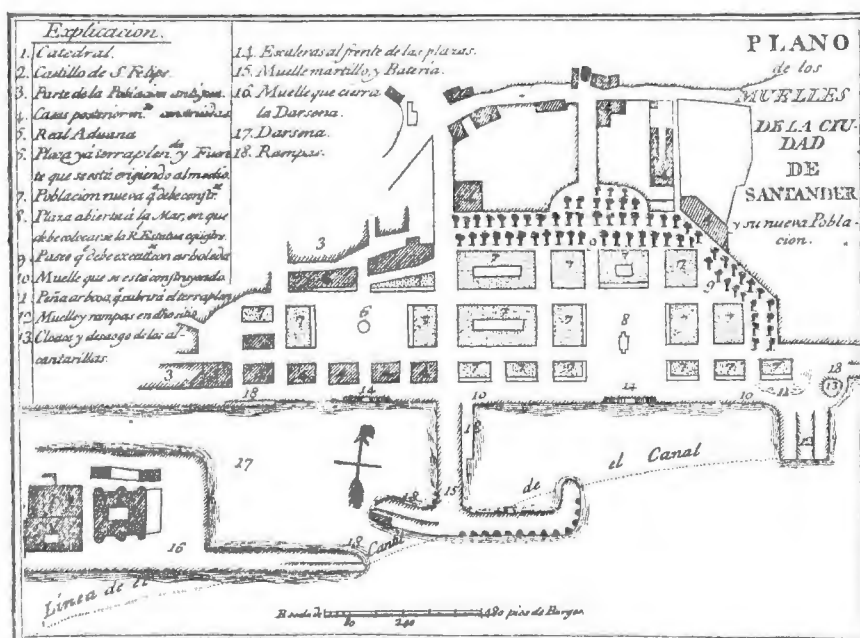 Explicacion.
1. Catedral.
2. Castillo de S. Felipe.
3. Parte de la Poblacion antigua.
4. Casas posteriorm.te construidas
5. Real Aduana
6. Plaza yá terraplen.da y Fuen
te que se está erigiendo al medio.
7. Poblacion nueva q.e debe constr.se
8. Plaza abierta á la Mar, en que
debe colocarse la R.l Estatua
9. Paseo q.e debe con arboleda
10. Muelle que se está construyendo
11. Peña q.e cubrirá el terraplen
12. Muelle y rampas en dho sitio
13. Cloaca y desaogo de las al
cantarillas.
14. Escaleras al frente de las plazas.
15. Muelle martillo, y Bateria.
16. Muelle que cierra
la Darsena.
17. Darsena.
18. Rampas.
PLANO
de los
MUELLES
DE LA CIU-
DAD
DE
SANTANDER
y su nueva Pobla-
cion.
3
9
7 7 7 7
9
7 7 6 7 7 7 8 7 7
3 7 7 7 7 7 7
18 14 10 14 10 18
13
17 18
el Canal
de
15
18
16 18
Canal
Linea de el
240 480 pies de Burgos